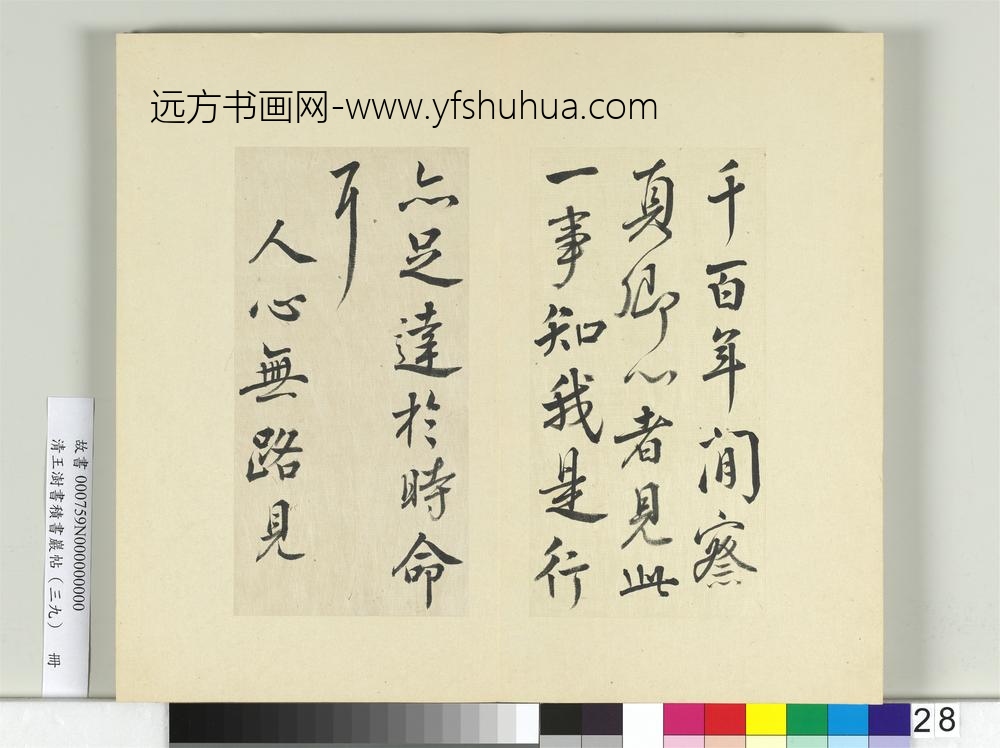 远方书画网-www.yfshuhua.com
千百年間察
真卿心者見此
一事知我是行
亦足達於時命
耳
人心無路見
故書 000759N000000000
清王澍書積書巖帖（三九） 冊
28